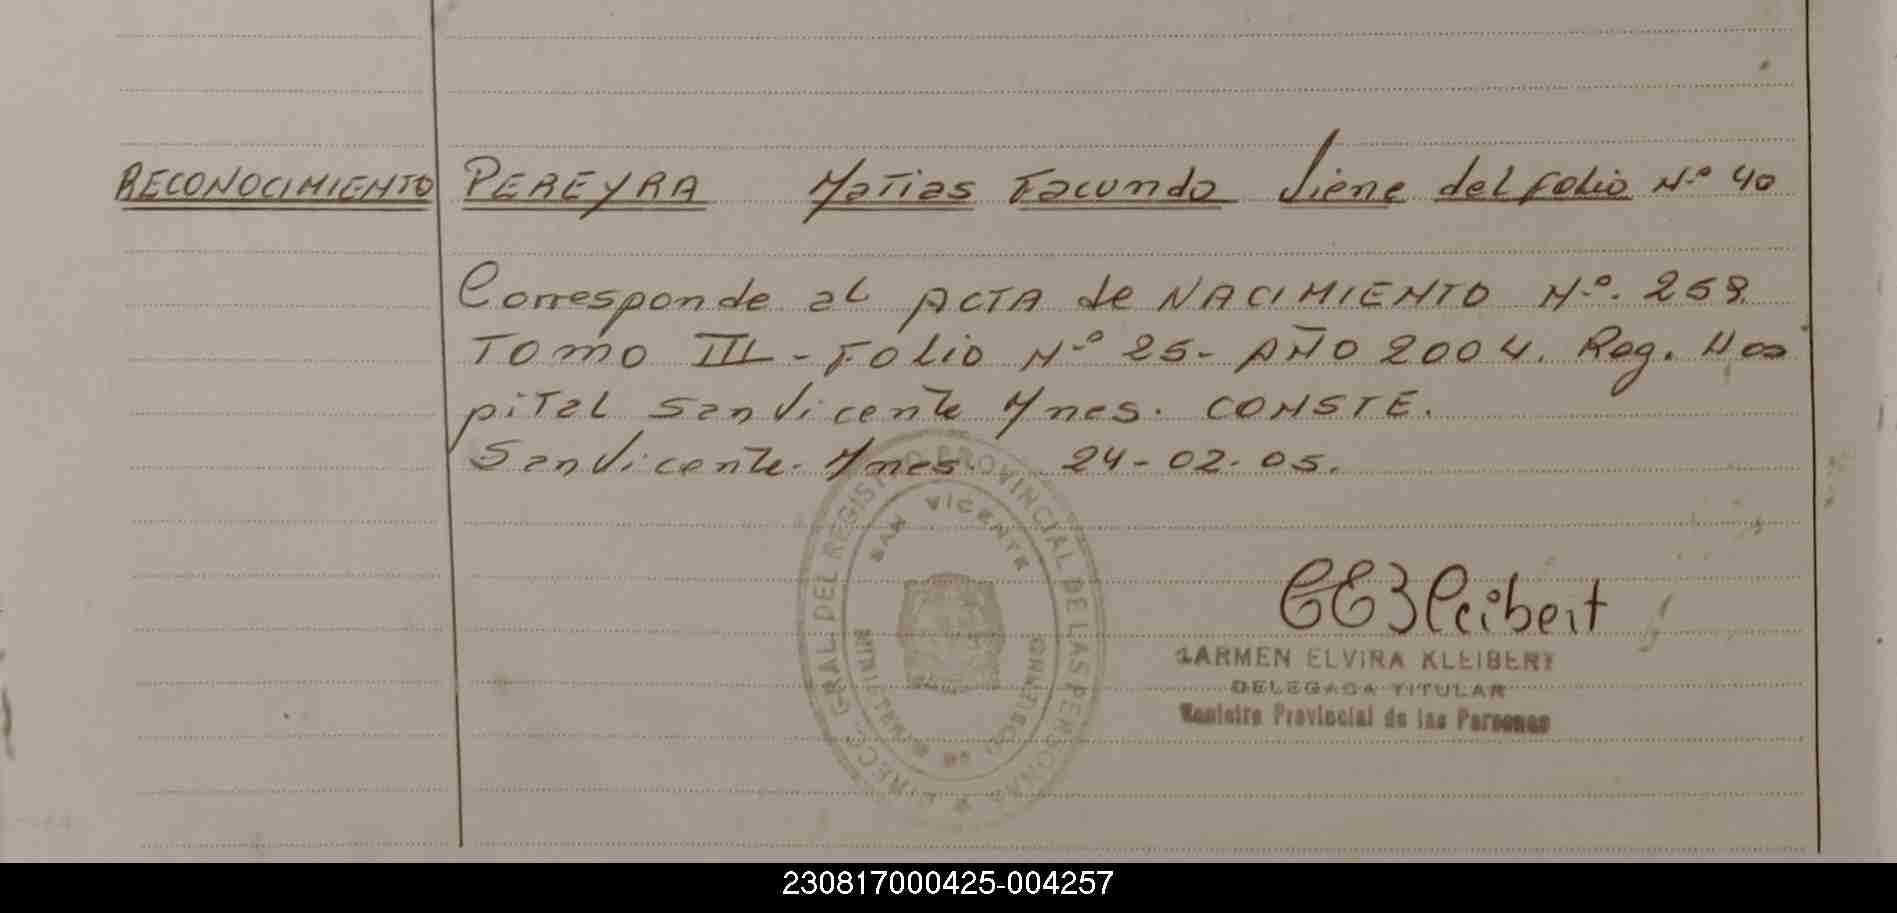 RECONOCIMIENTO PEREYRA Matias Facundo Viene del folio N.º 40
Corresponde al ACTA de NACIMIENTO N.º. 259.
TOMO III - Folio N.º 25 - AÑO 2004. Reg. Hos
pital San Vicente Mnes. CONSTE.
San Vicente. Mnes. 24-02-05.
DIRECC. GRAL. DEL REGISTRO PROVINCIAL DE LAS PERSONAS
SAN VICENTE
CEKleibert
CARMEN ELVIRA KLEIBERT
DELEGADA TITULAR
Registro Provincial de las Personas
230817000425-004257